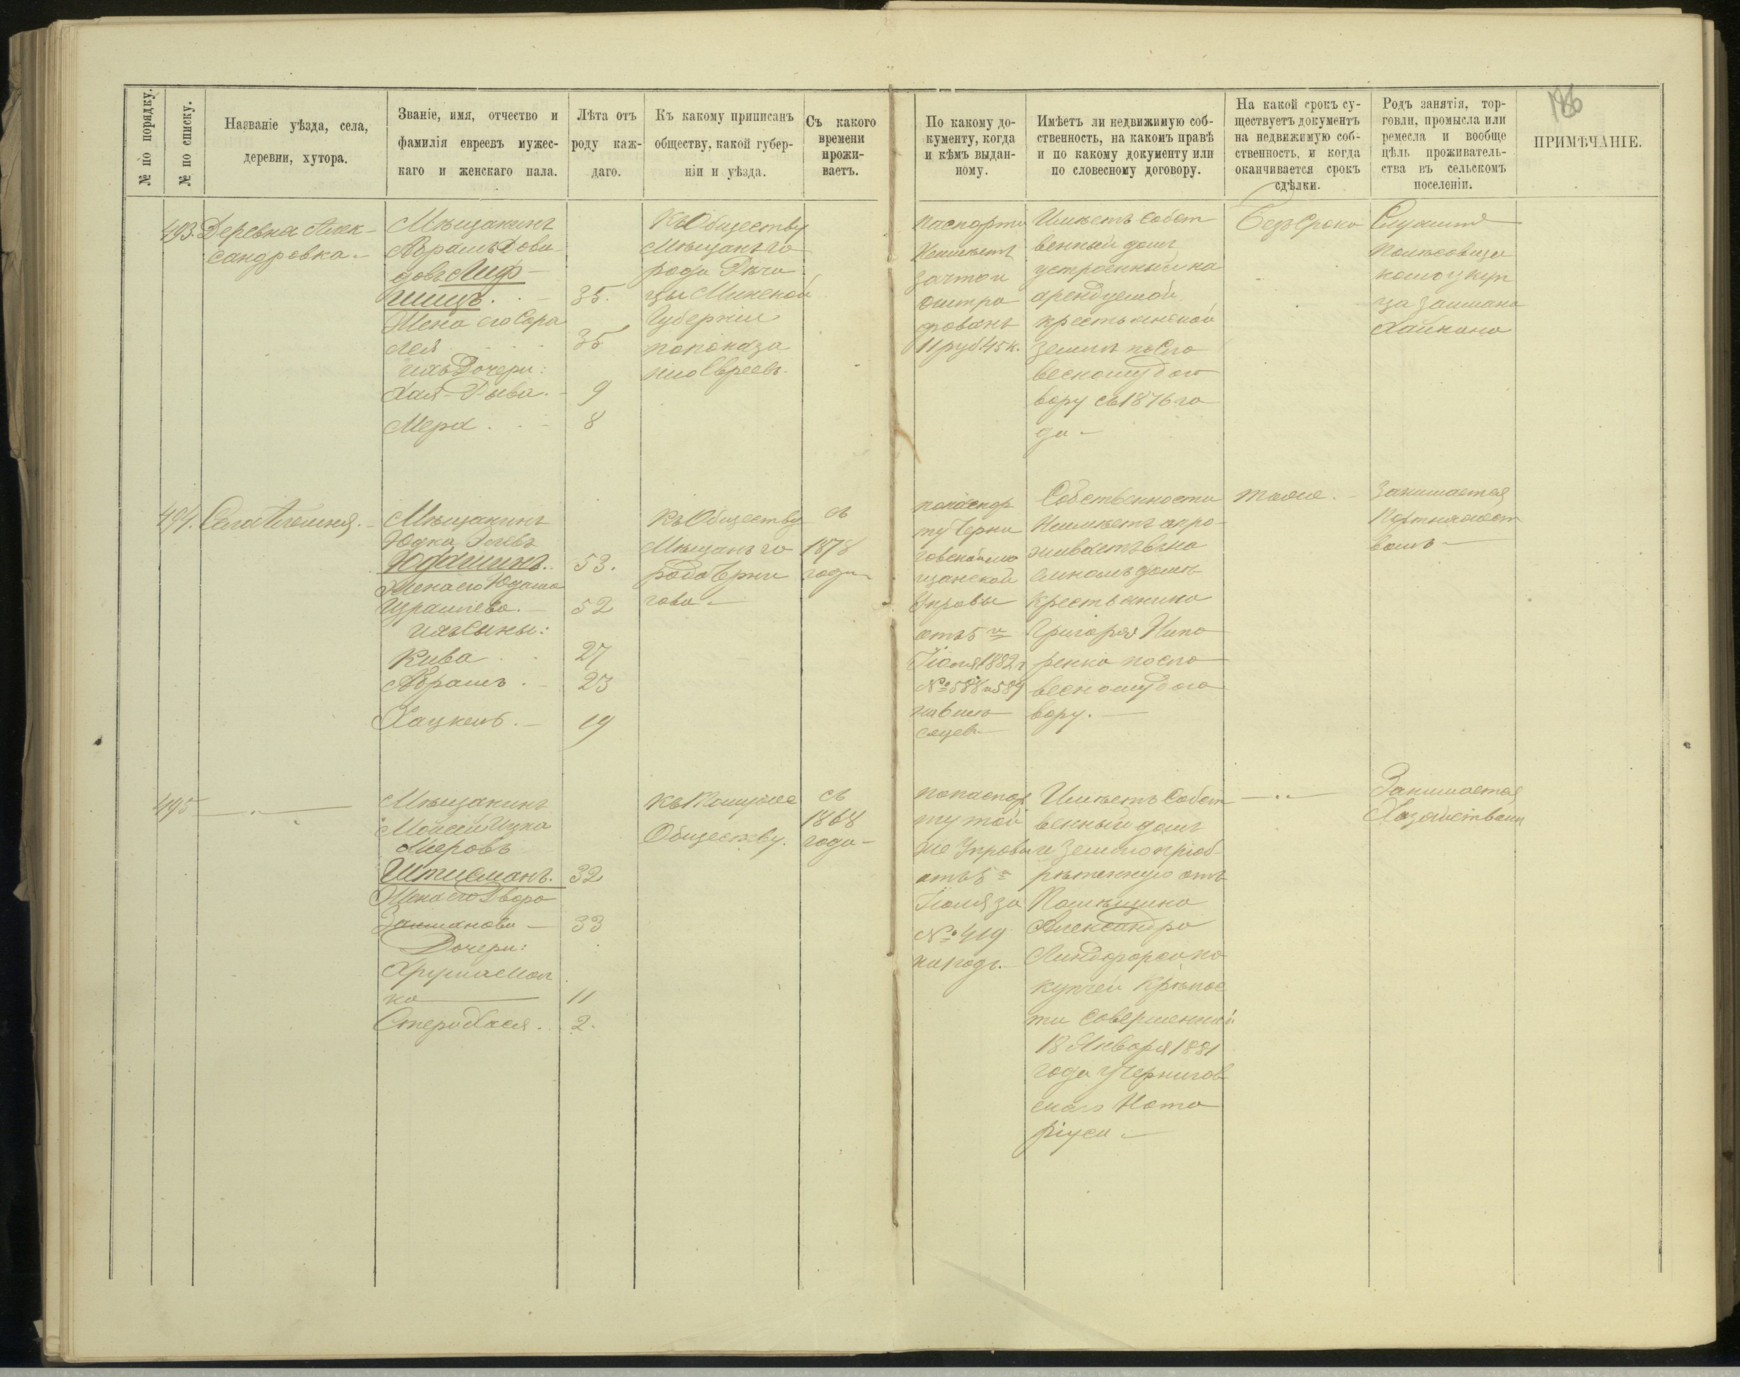 186
№ по порядку.
№ по списку.
Названіе уѣзда, села,
деревни, хутора.
Званіе, имя, отчество и
фамилія евреевъ мужес-
каго и женскаго пала.
Лѣта отъ
роду каж-
даго.
Къ какому приписанъ
обществу, какой губер-
ніи и уѣзда.
Съ какого
времени
прожи-
ваетъ.
По какому до-
кументу, когда
и кѣмъ выдан-
ному.
Имѣетъ ли недвижимую соб-
ственность, на какомъ правѣ
и по какому документу или
по словесному договору.
На какой срокъ су-
ществуетъ документъ
на недвижимую соб-
ственность, и когда
оканчивается срокъ
сдѣлки.
Родъ занятія, тор-
говли, промысла или
ремесла и вообще
цѣль проживатель-
ства въ сельскомъ
поселеніи.
ПРИМѢЧАНІЕ.
493.
Деревня Алек-
сандровка.
Мѣщанинъ
Абрамъ Дови
довъ Лиф-
шицъ. 35.
Жена его Сора
Лея 35
ихъ Дочери:
Хая-Рыва. 9
Мера 8
Къ Обществу
Мѣщанъ го
рода Рѣчи
цы Минской
Губерніи
по показа
нію Евреевъ.
Паспорта
Неимѣетъ
за что и
оштра
фованъ
11 руб 45 к.
Имѣетъ Собст
венный домъ
устроенный на
арендуемой
крестьянской
землѣ по Сло
весному дого
вору съ 1876 го
да
Безъ Срока
Служитъ
у куп
ца Залмана
Хайкина
494.
Мѣщанинъ
Юдка
Юдашинъ. 53.
Жена его Юдаша
52
ихъ Сыны:
Кива 27
Абрамъ 23
Хацкель. 19
Къ Обществу
Мѣщанъ го
рода Черни
гова.
съ
1878
года
по паспор
ту Черни
говской мѣ
щанской
Управы
отъ 5 го
Іюля 1882 г
№ 588 и 589
на 6 мѣ
сяцев.
Собственности
Неимѣетъ а про
живаетъ въ на
емномъ домѣ
Крестьянина
Григорія
ренка по сло
весному дого
вору.
тоже.
Занимается
Портняжест
вомъ
495
Мѣщанинъ
Моисей Ицка
Мееровъ
Штисманъ. 32
Жена его Двора
Залманова 33
Дочери:
11
2.
Къ Томуже
Обществу.
съ
1868
года
по паспор
ту той
же Управы
отъ 5 го
Іюля за
№ 419
на 1 годъ.
Имѣетъ Собст
венный домъ
и Землю пріоб
рѣтенную отъ
Помѣщика
Александра
по
купчей Крѣпос
ти Совершенной
18 Января 1881
года у Чернигов
скаго Нота
ріуса
Занимается
Хазяйствомъ